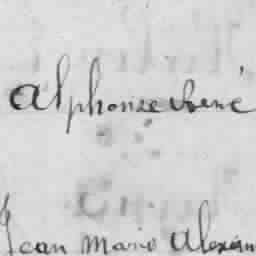 alphonse René
Jean Marie Alexan